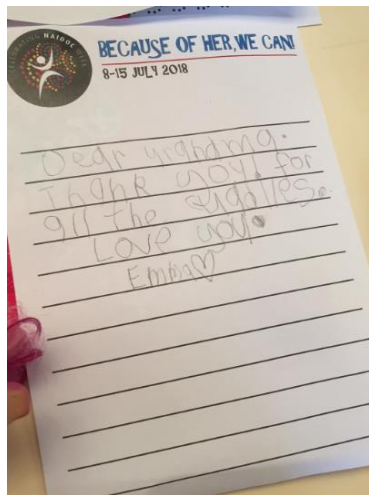 CELEBRATING NAIDOC WEEK
BECAUSE OF HER, WE CAN!
8-15 JULY 2018
Dear grandma.
Thank you for
all the cuddles.
Love you.
Emma♡